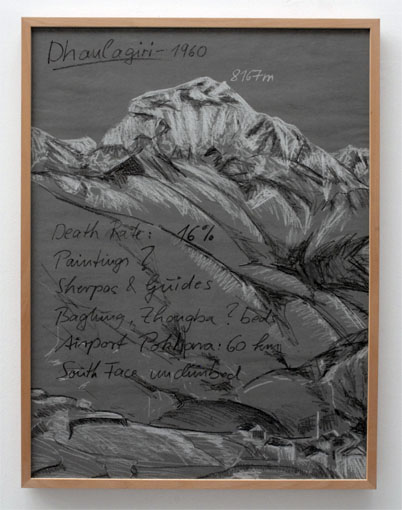 Dhaulagiri - 1960
8167m
Death Rate: 16%
Paintings ?
Sherpas & Guides
Baglung, Zhongba ? beds
Airport Pokhara: 60 km
South Face unclimbed